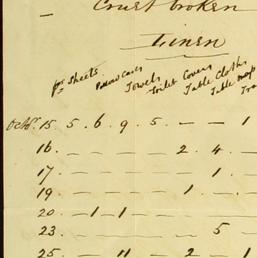 Court broken
Linen
pr Sheets Pillow Cases Towels Toilet Covers Table Cloths Table
Octbr. 15. 5. 6. 9. 5. — — 1
16. — — — — 2. 4. —
17. — — — — — 1. —
19 — — — — 1. — —
20. — 1 — 1 — — — —
23. — — — — — 5 —
25. — — 11 — 2 — 1